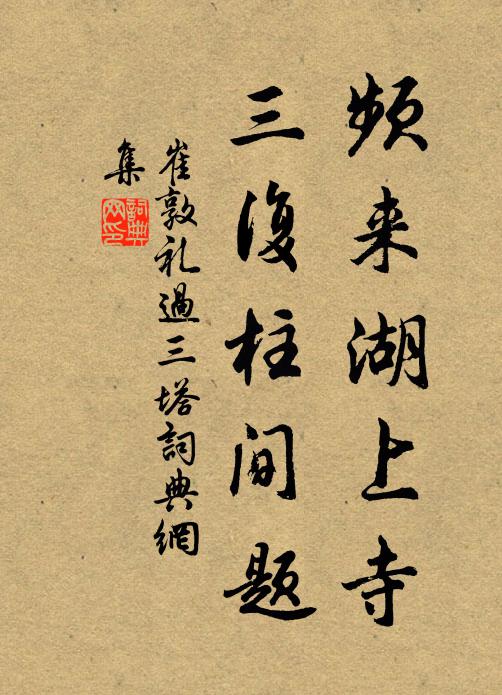 频来湖上寺
三復柱间题
崔敦礼過三塔詞典網
集
詞典
网印